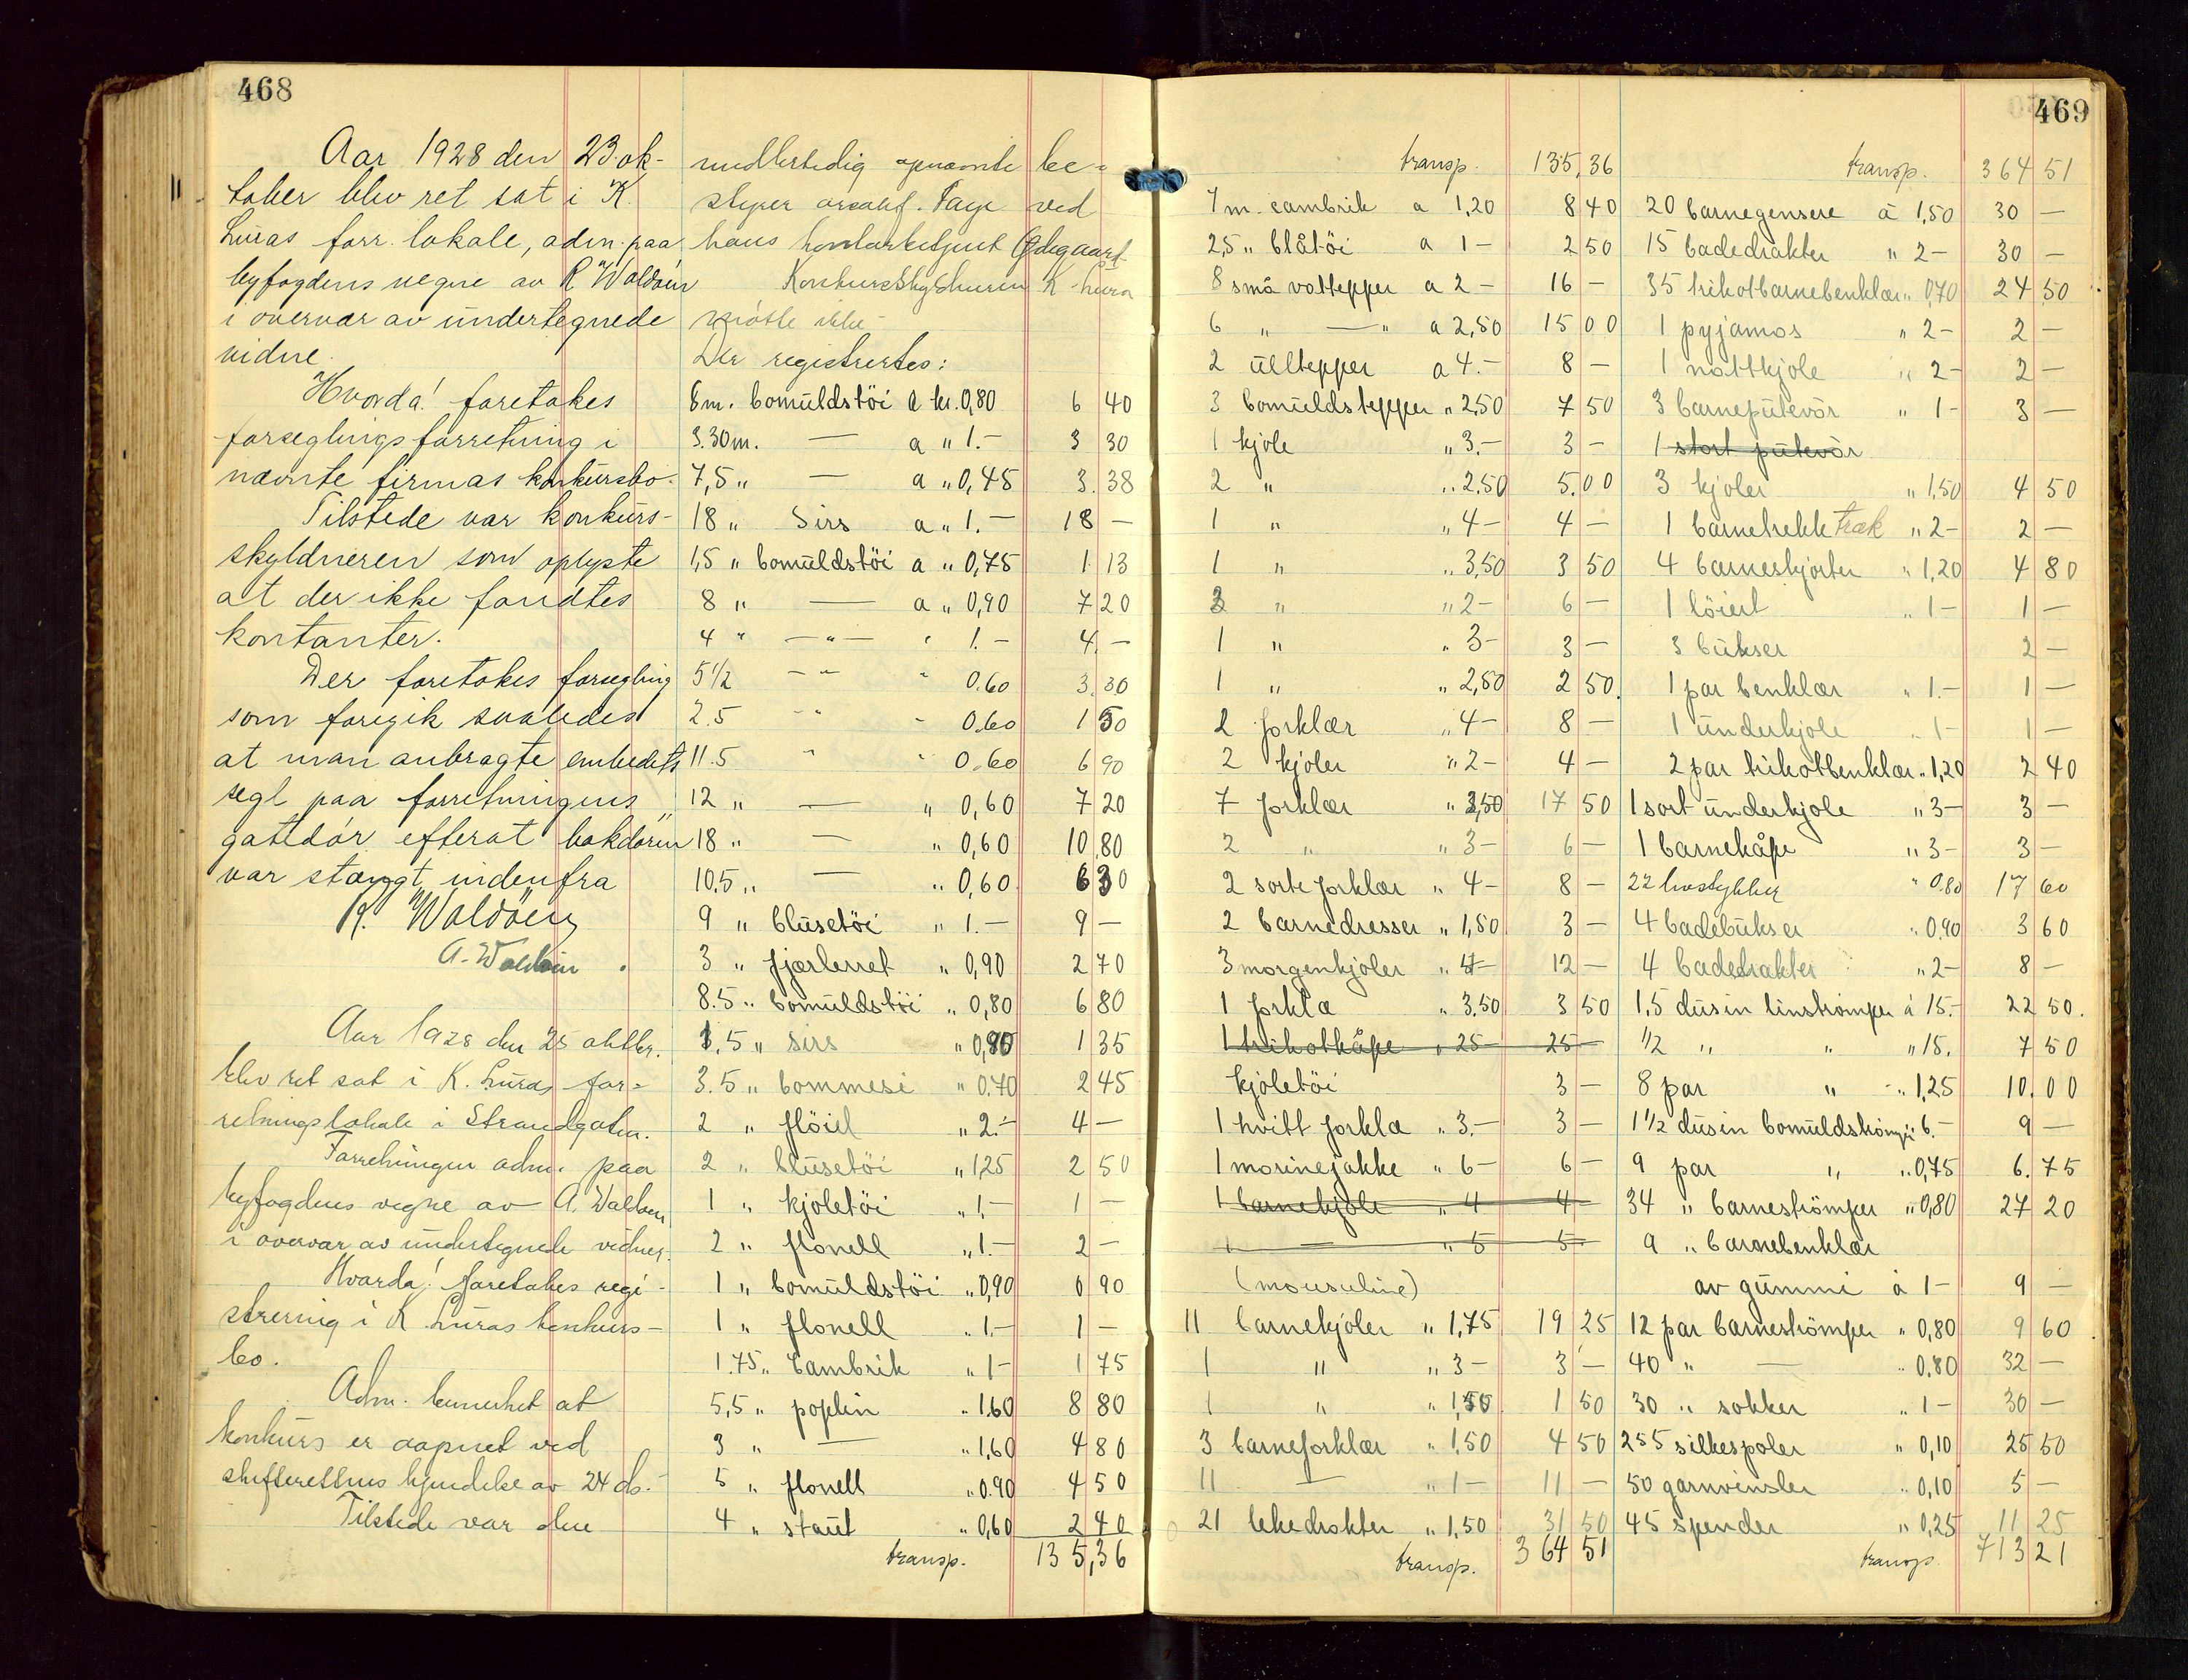 468
Aar 1928 den 23. ok-
tober blev ret sat i K.
Luras forr. lokale, adm. paa
byfogdens vegne av R Waldöen
i overvær av undertegnede
vidne.
Hvorda! foretokes
forseglingsforretning i
nævnte firmas konkursbo.
Tilstede var konkurs-
skyldneren som oplyste
at der ikke fandtes
kontanter.
Der foretokes forsegling
som foregik saaledes
at man anbragte embedets
segl paa forretningens
gatedör efterat bakdören
var stængt indenfra
R. Waldöen
A. Waldöen
Aar 1928 den 25 oktbr.
blev ret sat i K. Luras for-
retningslokale i Strandgaten.
Forretningen adm. paa
byfogdens vegne av A. Waldöen
i overvær av undertegnede vidner.
Hvorda! foretokes regi-
strering i K Luras konkurs-
bo.
Adm. bemerket at
konkurs er aapnet ved
skifterettens kjendelse av 24 ds.
Tilstede var den
midlertidig opnævnte be-
styrer ved
hans kontorbetjent Ödegaard
Konkursskyldneren K. Lura
mötte ikke
Der registrertes:
8 m. bomuldstöi a kr. 0,80 6 40
3.30 m. — a " 1.- 3 30
7,5 " — a " 0,45 3.38
18 " Sirs a " 1.- 18 -
1,5 " bomuldstöi a " 0,75 1 13
8 " — a " 0,90 7 20
4 " — " — " 1.- 4 -
5 1/2 — " " 0.60 3.30
2.5 " " 0.60 1 50
11.5 " " 0.60 6 90
12 " — " 0,60 7 20
18 " — " 0,60 10 80
10.5 " — " 0,60 6 30
9 " blusetöi " 1.- 9 -
3 " fjærlerret " 0,90 2 70
8.5 " bomuldstöi " 0,80 6 80
1.5 " sirs " 0,90 1 35
3.5 " bommesi " 0.70 2 45
2 " flöiel " 2.- 4 -
2 " blusetöi " 1,25 2 50
1 " kjoletöi " 1,- 1 -
2 " flonell " 1.- 2 -
1 " bomuldstöi " 0,90 0 90
1 " flonell " 1.- 1 -
1.75 " Cambrik " 1- 1 75
5,5 " poplin " 1.60 8 80
3 " — " 1,60 4 80
5 " flonell " 0.90 4 50
4 " staut " 0,60 2 40
transp. 135,36
469
transp. 135,36
7 m. cambrik a 1,20 8 40
2,5 " blåtöi a 1- 2 50
8 små vattepper a 2- 16 -
6 " — " a 2,50 15 00
2 ulltepper a 4.- 8 -
3 bomuldstepper " 2,50 7 50
1 kjole " 3.- 3 -
2 " " 2.50 5.00
1 " " 4- 4 -
1 " " 3,50 3 50
3 " " 2- 6 -
1 " " 3- 3 -
1 " " 2,50 2 50.
2 forklær " 4- 8 -
2 kjoler " 2- 4 -
7 forklær " 2,50 17 50
2 " " 3- 6 -
2 sorte forklær " 4- 8 -
2 barnedresser " 1,50 3 -
3 morgenkjoler " 4- 12 -
1 forkla " 3.50 3 50
1 trikotkåpe " 25- 25 -
kjoletöi 3 -
1 hvitt forkla " 3.- 3 -
1 marinejakke " 6- 6 -
1 barnekjole " 4 4 -
1 — " 5 5 -
(mousseline)
11 barnekjoler " 1,75 19 25
1 " " 3- 3 -
1 " " 1,50 1 50
3 barneforklær " 1,50 4 50
11 — " 1- 11 -
21 lekedrakter " 1,50 31 50
transp. 364 51
transp. 364 51
20 barnegensere á 1,50 30 -
15 badedrakter " 2- 30 -
35 trikotbarnebenklær " 0,70 24 50
1 pyjamos " 2- 2 -
1 nattkjole " 2- 2 -
3 barneputevör " 1- 3 -
1 stort putevör
3 kjoler " 1,50 4 50
1 barnetrekk træk " 2- 2 -
4 barneskjorter " 1,20 4 80
1 löiert " 1- 1 -
3 bukser 2 -
1 par benklær " 1.- 1 -
1 underkjole " 1- 1 -
2 par trikotbenklær " 1,20 2 40
1 sort underkjole " 3- 3 -
1 barnekåpe " 3- 3 -
22 livstykker " 0.80 17 60
4 badebukser " 0.90 3 60
4 badedrakter " 2- 8 -
1,5 dusin linströmper á 15.- 22 50.
1/2 " " " 15. 7 50
8 par " " 1,25 10.00
1 1/2 dusin bomuldströmper 6.- 9 -
9 par " " 0,75 6.75
34 " barneströmper " 0,80 27 20
9 " barnebenklær
av gummi á 1- 9 -
12 par barneströmper " 0,80 9 60
40 " — " 0.80 32 -
30 " sokker " 1- 30 -
255 silkespoler " 0,10 25 50
50 garnvinsler " 0,10 5 -
45 spender " 0,25 11 25
transp. 713 21